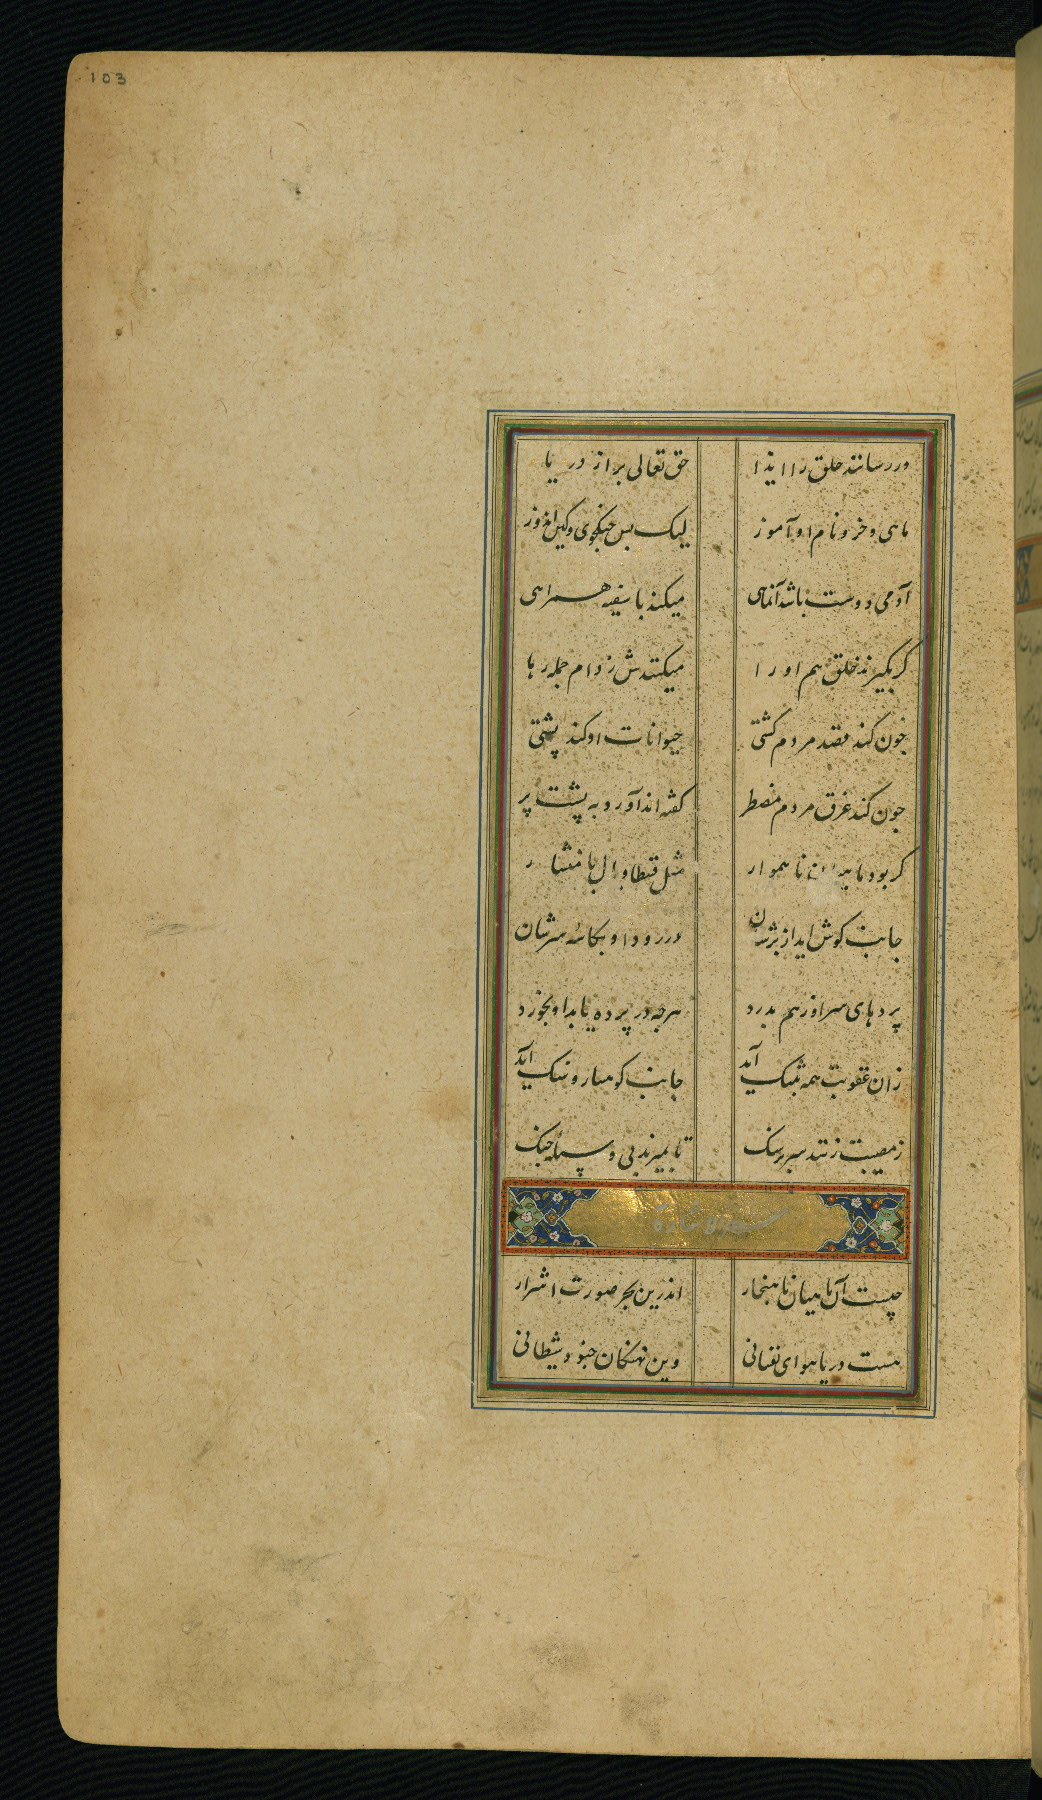 103
در رسانند خلق را ایذا حق تعالی بر از در یا
ماهی و خر و نام او آموز لیک بس جنکجوی و کین اندوز
آدمی دوست باشد آنماهی میکند با سفینه همراهی
کر بگیرند خلق هم اورا میکنندش ز دام جمله رها
چون کند قصد مردم کشتی حیوانات او کند پشتی
چون کند غرق مردم مضطر کفته اند آورد به پشت پر
کر بود ناهموار مثل قنطار وال با منشار
جانب کوش اید از در رود او بکاسه سرشان
پردهای سر اوز هم بدرد هرچه در پرده یابد او بخورد
زان عقوبت همه بتنک آید جانب کوهسار و سنک اید
ز مصیبت زنند سر بر سنک تا بمیرند بی و جنک
چیست آن ماهیان ناهنجار اندرین بحر صورت اشرار
هست دریا هوای نفسانی وین نهنکان جنود شیطانی